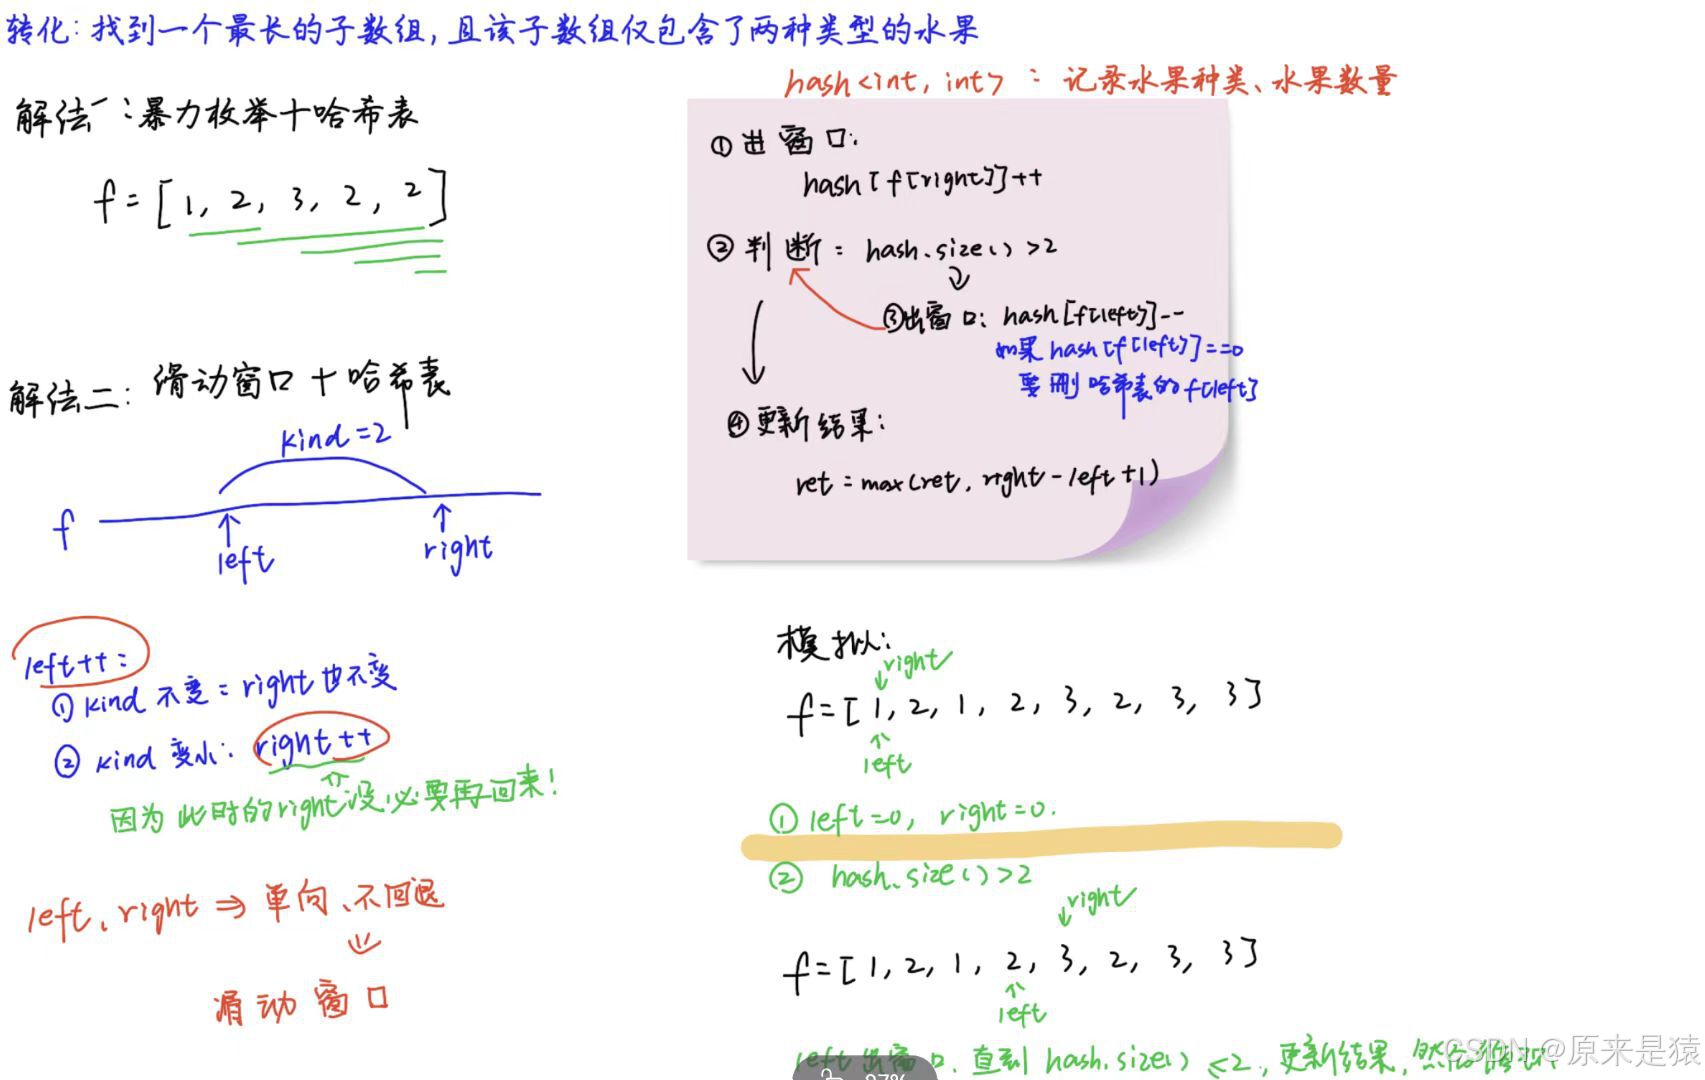 转化: 找到一个最长的子数组, 且该子数组仅包含了两种类型的水果
hash<int, int> : 记录水果种类、水果数量
解法一: 暴力枚举+哈希表
f = [1, 2, 3, 2, 2]
① 进窗口:
hash[f[right]]++
② 判断: hash.size() >2
③出窗口: hash[f[left]]--
如果 hash[f[left]]==0
要删哈希表的 f[left]
④更新结果:
ret = max(ret, right-left+1)
解法二: 滑动窗口+哈希表
kind=2
f
left
right
left++:
① kind 不变: right也不变
② kind 变小: right++
因为此时的right没必要再回来!
left、right ⇒ 单向、不回退
滑动窗口
模拟:
right
f=[1, 2, 1, 2, 3, 2, 3, 3]
left
① left=0, right=0.
② hash.size()>2
right
f=[1, 2, 1, 2, 3, 2, 3, 3]
left
left出窗口, 直到 hash.size() ≤2, 更新结果, 然后
CSDN @原来是猿